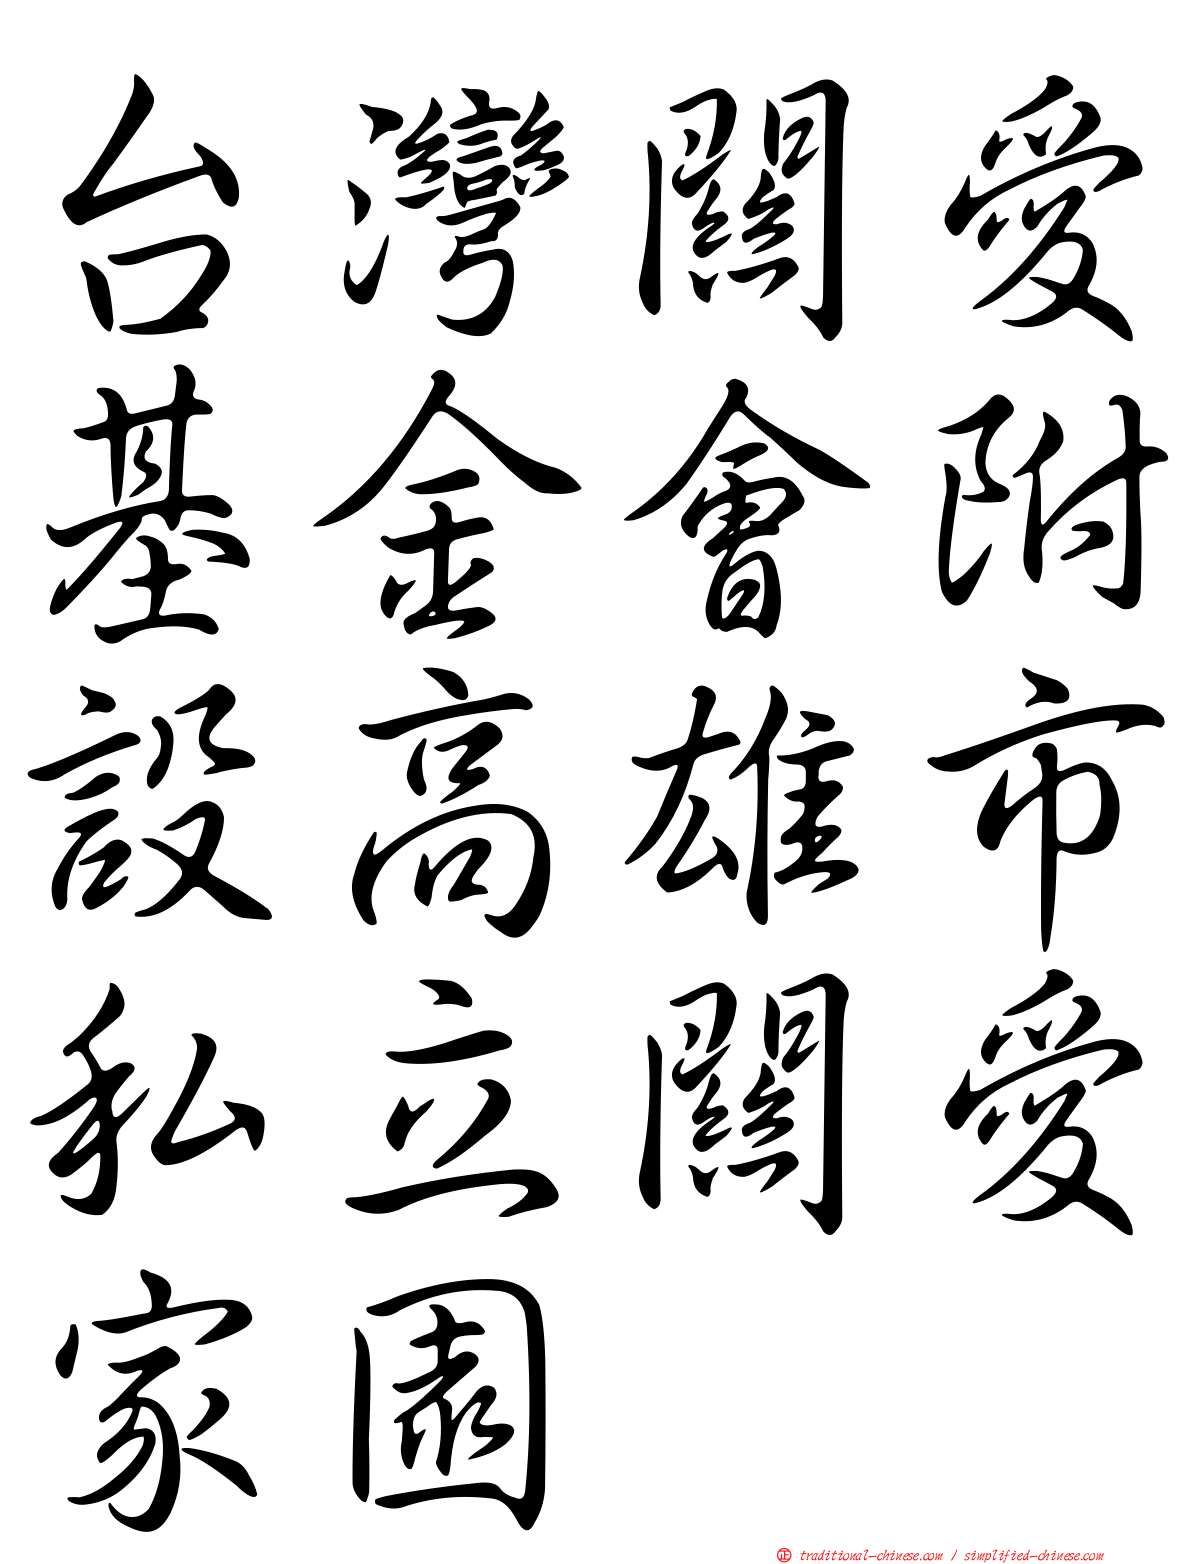 台灣關愛
基金會附
設高雄市
私立關愛
家園
正 traditional-chinese.com / simplified-chinese.com